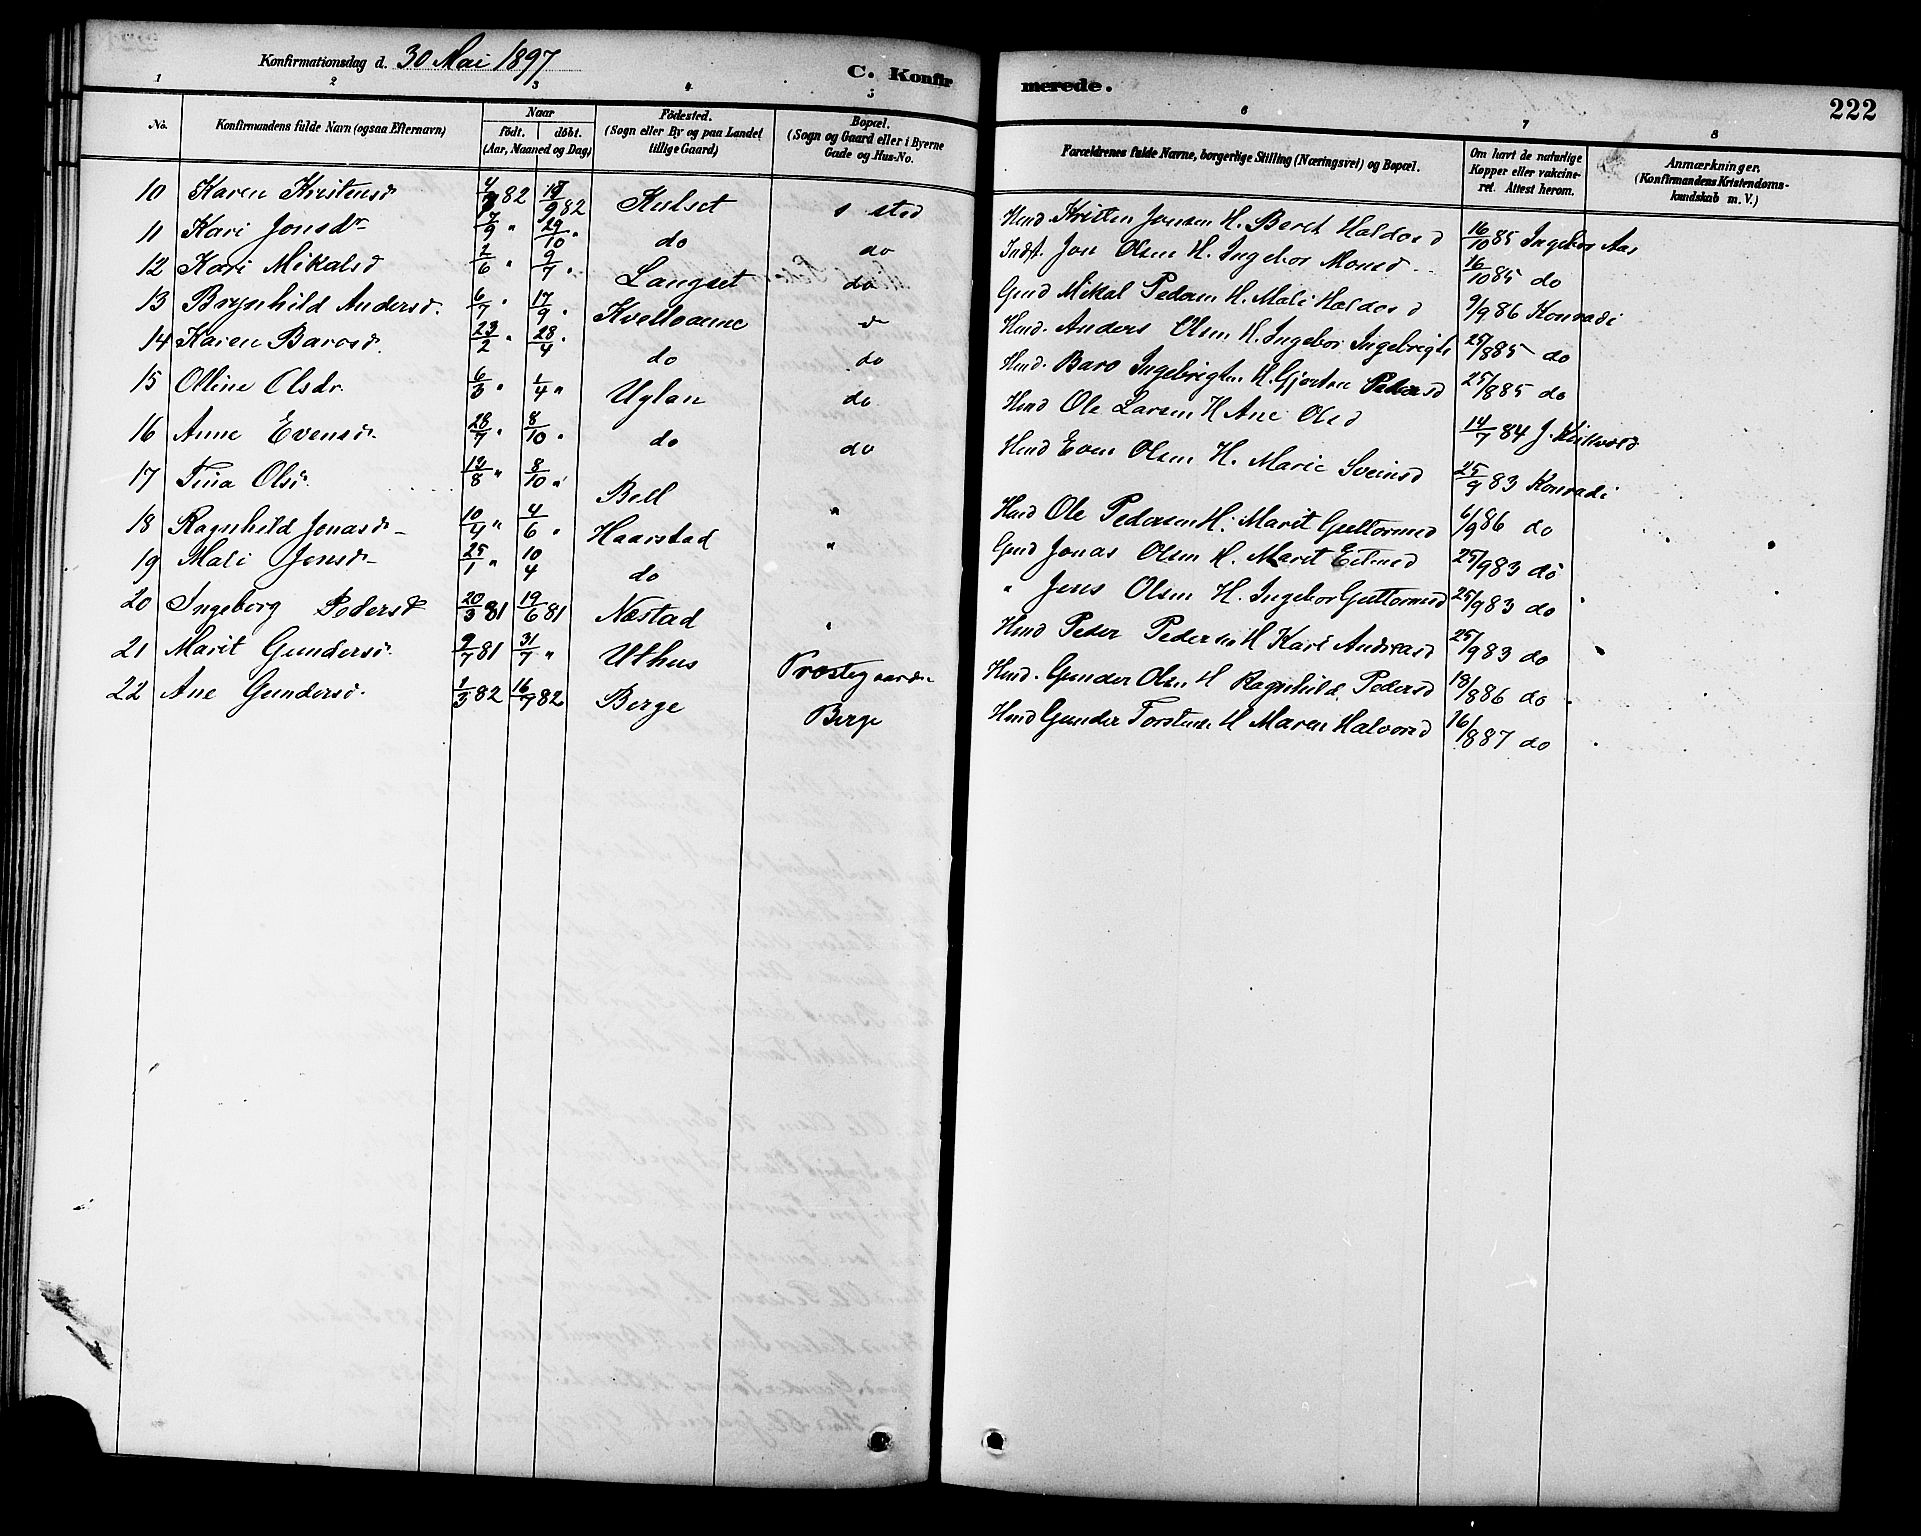 Konfirmationsdag d. 30 Mai 1897
C. Konfirmerede.
222
1 2 3 4 5 6 7 8
No. Konfirmandens fulde Navn (ogsaa Efternavn) Naar født. døbt. (Aar, Maaned og Dag) Fødested. (Sogn eller By og paa Landet tillige Gaard) Bopæl. (Sogn og Gaard eller i Byerne Gade og Hus-No. Forældrenes fulde Navne, borgerlige Stilling (Næringsvei) og Bopæl. Om havt de naturlige Kopper eller vakcineret. Attest herom. Anmærkninger. (Konfirmandens Kristendomskundskab m. V.)
10 Karen Kristensd 82 9 82 Kulset s sted Hmd Kristen Jonsen H. Beret Haldosd 16/10 85 Ingebor Aas
11 Kari Jonsdr 7/9 " 29/10 " do do Indst. Jon Olsen H. Ingebor Monsd 16/10 85 do
12 Kari Mikalsd 2/6 " 9/7 " Langset do Gmd Mikal Pedersen H. Mali Haldosd 9/9 86 Konradi
13 Brynhild Andersd. 6/7 " 17/9 " Kvelloame Hmd. Anders Olsen H. Ingebor Ingebrigts 25/8 85 do
14 Karen Barosd. 23/2 " 28/4 " do do Hmd. Baro Ingebrigtsn H. Gjertru Pedersd 25/8 85 do
15 Olline Olsdr 6/3 " 1/4 " Uglan do Hmd Ole Larsen H Ane Olsd 14/7 84
16 Anne Evensd. 28/7 " 8/10 " do do Hmd Even Olsen H. Marie Sveinsd 25/9 83 Konradi
17 Tina Olsd. 12/8 " 8/10 " Bell " Hmd Ole Pedersen H. Marit Guttormsd 6/9 86 do
18 Ragnhild Jonasd 10/4 " 4/6 " Haarstad " Gmd Jonas Olsen H. Marit Estensd 25/9 83 do
19 Mali Jensd 25/1 " 10/4 do " Jens Olsen H. Ingebor Guttormsd 25/9 83 do
20 Ingeborg Pedersd 20/3 81 19/6 81 Næstad " Hmd Peder Pedersen H Kari Andreasd 25/9 83 do
21 Marit Gundersd. 9/7 81 31/7 " Uthus Præstegaarden Hmd. Gunder Olsen H Ragnhild Pedersd 18/8 86 do
22 Ane Gundersd. 1/3 82 16/9 82 Berge Berge Hmd Gunder Torstens H Maren Halvorsd 16/8 87 do